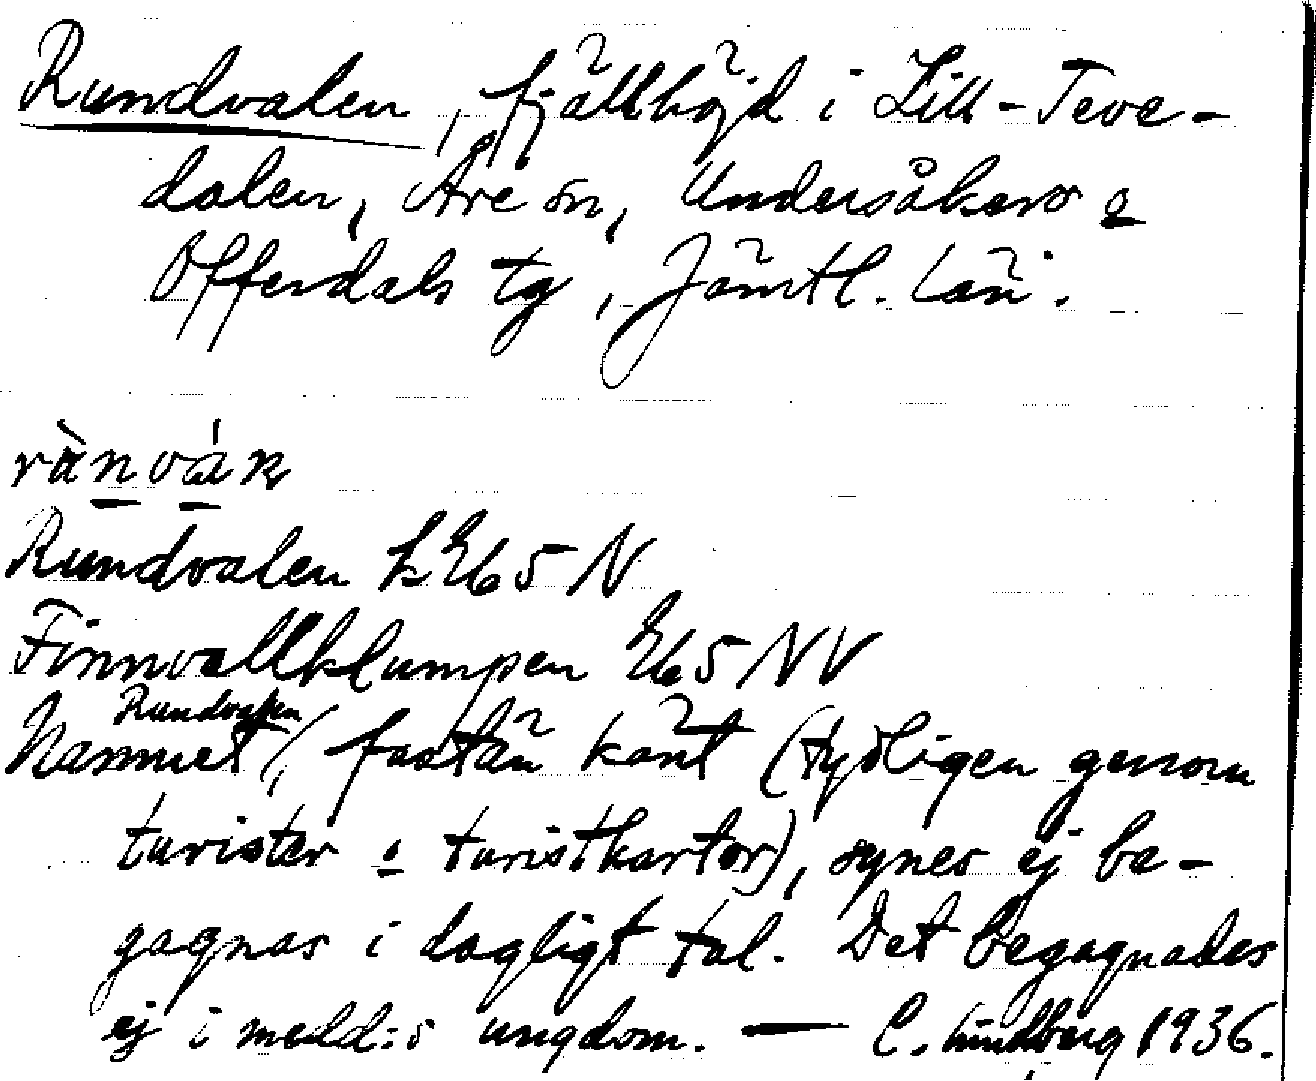 Rundvalen, fjällhöjd i Lill-Teve-
dalen, Åre sn, Undersåkers o
Offerdals tg, Jämtl. län.
rànvák
Rundvalen k E65 N
Finnvallklumpen E65 NV
Namnet Rundvalen, fastän känt (tydligen genom
turister o turistkartor), synes ej be-
gagnas i dagligt tal. Det begagnades
ej i medd:s ungdom. — C. Lindberg 1936.